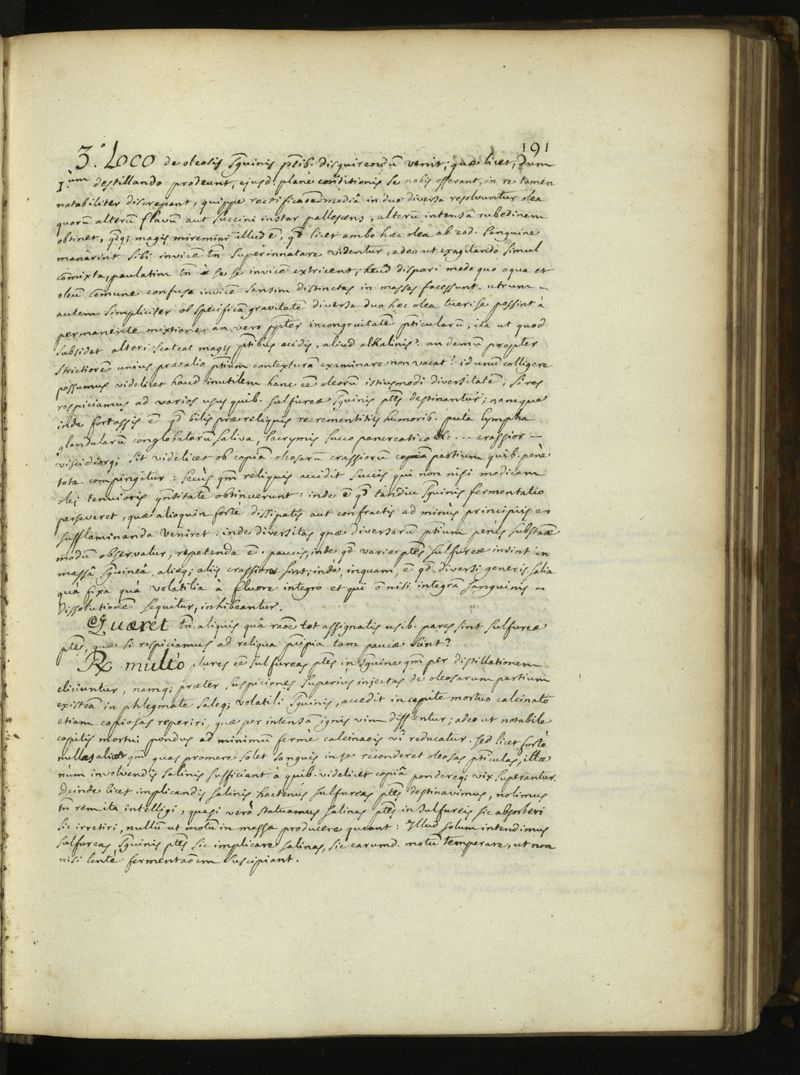 191
3.° Loco de oleosis sguinis ptib. disquirendū venit; quæ licet, dum
1.um destillando prodeunt, ejusd. planè conditionis se nobis offerant, in re tamen
notabiliter discrepant, quippe rectificaoē mediâ in duo diversa resolvuntur olea
quorū alterū flavū aut succini instar pallescens, alterū intensā rubedinem
obtinet, qdq; magis miremini illud ē, qd licet ambo hæc olea ab eod. sanguine
manarint sibi invicē tn superinnatare videntur, adeo ut exagitando simul
comixta, paulatim tn à se invicē extricent; haud dispari modo quo aqua et
oleū comune confusa invicē sensim distinctas in massas facessunt, utrum
autem simpliciter ob specificā gravitatē diversa duo hæc olea tueri se possint à
permanente mixtione, an vero ppter incongruitatē pticularū, ita ut quod
subsidet alteri scateat magis ptibus acidis, aliud alkalinis? an demū propter
strictiorē unius præ alio ptium contexturā examinare non vacat? id unū colligere
possumus videlicet haud inutilem hanc eē oleorū istiusmodi diversitatē, si res
respiciamus ad varios usus quib. sulfureæ sguinis ptes destinantur; namque
inde fortassis ē qd bilis præ reliquis recrementitiis humorib. puta lympha
glandularū conglobatarū saliva, lacrymis succo pancreatico &c... crassior
viscidiorq; sit videlicet ob copiā oleosarū crassiorū partium, quib. penè
tota compingitur: secùs qm reliquis accidit succis qui non nisi modicam
olei tenuioris qntitatē obtinuerunt: inde ē qd tandiu sguinis fermentatio
perseveret, quæ alioquin fortè dissipatis aut confractis ad minùs principiis
sufflaminanda veniret. inde diversitas quæ diversarū ptium penès substaæ
modū observatur, repetenda ē. paucis, inde qd variæ ptes sulfureæ insint in
massâ sguineâ, aliæq; aliis crassiores sint; inde, inquam ē qd diversi generis salia
quà fixa quà volatilia à fluore integro et qui ō nisi integrā sanguinis
dissolutionē sequitur, inhibeantur.
Quæret tn aliquis quâ raoē tot assignatis usib. pares sint sulfureæ
ptes, quæ si respiciamus ad reliqua pīpia tam paucæ sunt?
R. multò plures eē sulfureas ptes in sguine qm per distillationem
eliciuntur, namq; præter suspiciones superius injectas de oleosarum partium
existēa in phlegmate saleq; volatili sguinis, accedit in capite mortuo calcinato
etiam copiosas reperiri, quæ per intensā ignis vim difflentur; adeo ut notabile
capitis mortui pondus ad minimū fermè calcinaois vi reducatur. sed licet fortè
nullas alias qm quas promere solet sanguis in se reconderet oleosas pticulas, illæ
num involvendis salinis sufficiant à quib. videlicet copiâ pondereq; vix superantur.
Deinde licet implicandis salinis hactenus sulfureas ptes destinavimus, nolimus
tn rem ita intelligi, quasi verò statuamus salinas ptes in sulfureis sic absorberi
sic irretiri, nullū ut motū in massa producere queant: Illud solum intendimus
sulfureas, sguinis ptes sic implicare salinas, sic earumd. motū temperare, ut non
nisi lentè fermentaoēm suscipiant.